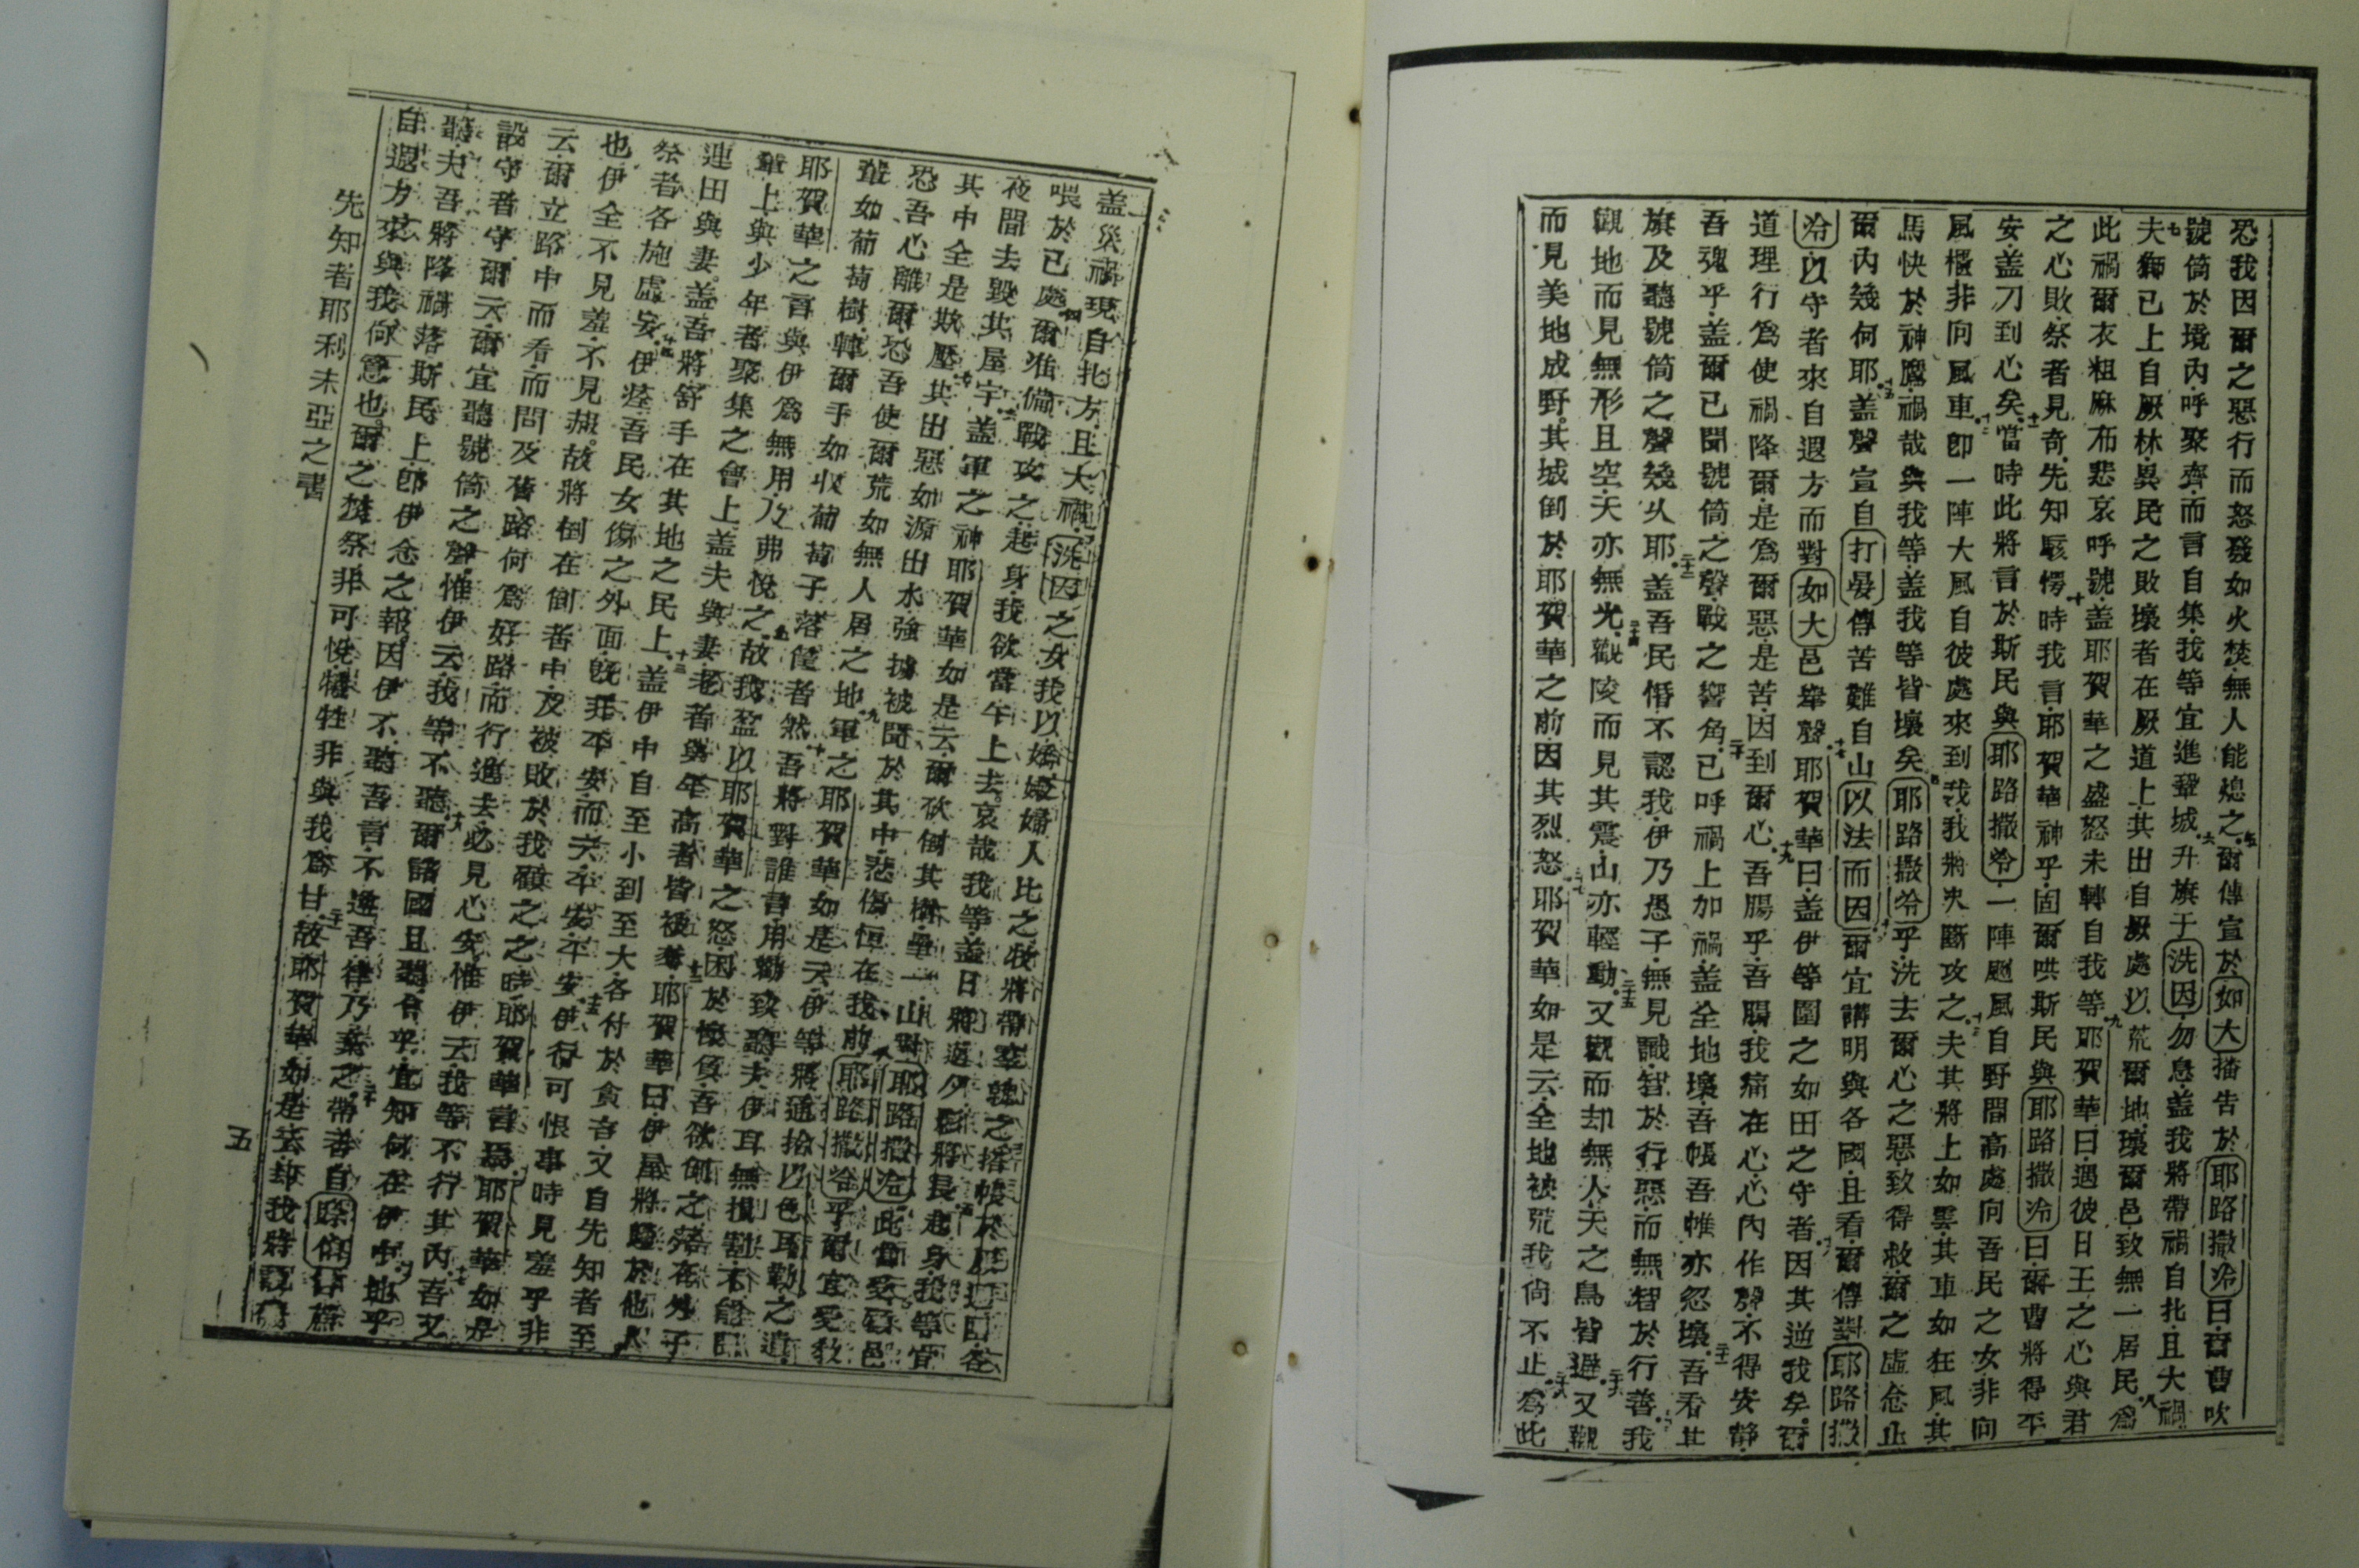 恐我因爾之惡行而怒發如火焚無人能熄之五爾傳宣於如大播告於耶路撒冷曰爾曹吹
號筒於境內呼聚齊而言自集我等宜進鞏城六升旗于洗因勿息盖我將帶禍自北且大禍
七夫獅已上自厥林異民之敗壞者在厥道上其出自厥處以荒爾地壞爾邑致無一居民八為
此禍爾衣粗麻布悲哀呼號盖耶賀華之盛怒未轉自我等九耶賀華曰遇彼日王之心與君
之心敗祭者見奇先知駭愕十時我言耶賀華神乎固爾哄斯民與耶路撒冷曰爾曹將得平
安盖刀到心矣十一當時此將言於斯民與耶路撒冷一陣颷風自野間高處向吾民之女非向
風櫃非向風車十二卽一陣大風自彼處來到我我將夬斷攻之十三夫其將上如雲其車如狂風其
馬快於神鷹禍哉與我等盖我等皆壞矣十四耶路撒冷乎洗去爾心之惡致得救爾之虛念止
爾內幾何耶十五盖聲宣自打晏傳苦難自山以法而因十六爾宜講明與各國且看爾傳對耶路撒
冷以守者來自遐方而對如大邑舉聲十七耶賀華曰盖伊等圍之如田之守者因其逆我矣十八爾
道理行為使禍降爾是為爾惡是苦因到爾心十九吾腸乎吾腸我痛在心心內作聲不得安靜
吾魂乎盖爾已聞號筒之聲戰之響角二十已呼禍上加禍盖全地壞吾帳吾帷亦忽壞二十一吾看其
旗及聽號筒之聲幾乆耶二十二盖吾民惛不認我伊乃愚子無見識智於行惡而無智於行善二十三我
觀地而見無形且空天亦無光二十四觀陵而見其震山亦輕動二十五又觀而却無人天之鳥皆避二十六又觀
而見美地成野其城倒於耶賀華之前因其烈怒二十七耶賀華如是云全地被荒我尚不止二十八為此
盖災禍現自北方且大禍二洗因之女我以嬌嫩婦人比之三牧將帶羣就之搭帳於厥週囙各
喂於已處四爾准備戰攻之起身我欲當午上去哀哉我等盖日將過夕影將長五起身我等宜
夜間去毀其屋宇六盖軍之神耶賀華如是云爾砍倒其樹壘一山對耶路撒冷此當受罰邑
其中全是欺壓七其出惡如源出水強擄被聞於其中悲傷恒在我前八耶路撒冷乎爾宜受教
恐吾心離爾恐吾使爾荒如無人居之地九軍之耶賀華如是云伊等將通拾以色耳勒之遺
輩如葡萄樹轉爾手如収葡萄子落筐者然十吾將對誰書用勸致聽夫伊耳無損割不能聽
耶賀華之言與伊為無用乃弗悅之十一故我盈以耶賀華之怒困於懷負吾欲傾之落在外子
輩上與少年者聚集之會上盖夫與妻老者與年高者皆被奪十二耶賀華曰伊屋將歸於他人
連田與妻盖吾將舒手在其地之民上十三盖伊中自至小到至大各付於貪吝又自先知者至
祭者各施虛妄十四伊痊吾民女傷之外面旣非平安而云平安平安十五伊行可恨事時見羞乎非
也伊全不見羞不見赧故將倒在倒者中及被敗於我顧之之時耶賀華言焉十六耶賀華如是
云爾立路中而看而問及舊路何為好路而行過去必見心安惟伊云我等不行其內十七吾又
設守者守爾云爾宜聽號筒之聲惟伊云我等不聽十八爾諸國且聽會乎宜知何在伊中十九地乎
聽夫吾將降禍落斯民上卽伊念之報因伊不聽吾言不進吾律乃棄之二十帶香自時伯甘蔗
自遐方來與我何意也爾之焚祭非可悅犧牲非與我為甘二十一故耶賀華如是云却我將設
先知者耶利未亞之書
五